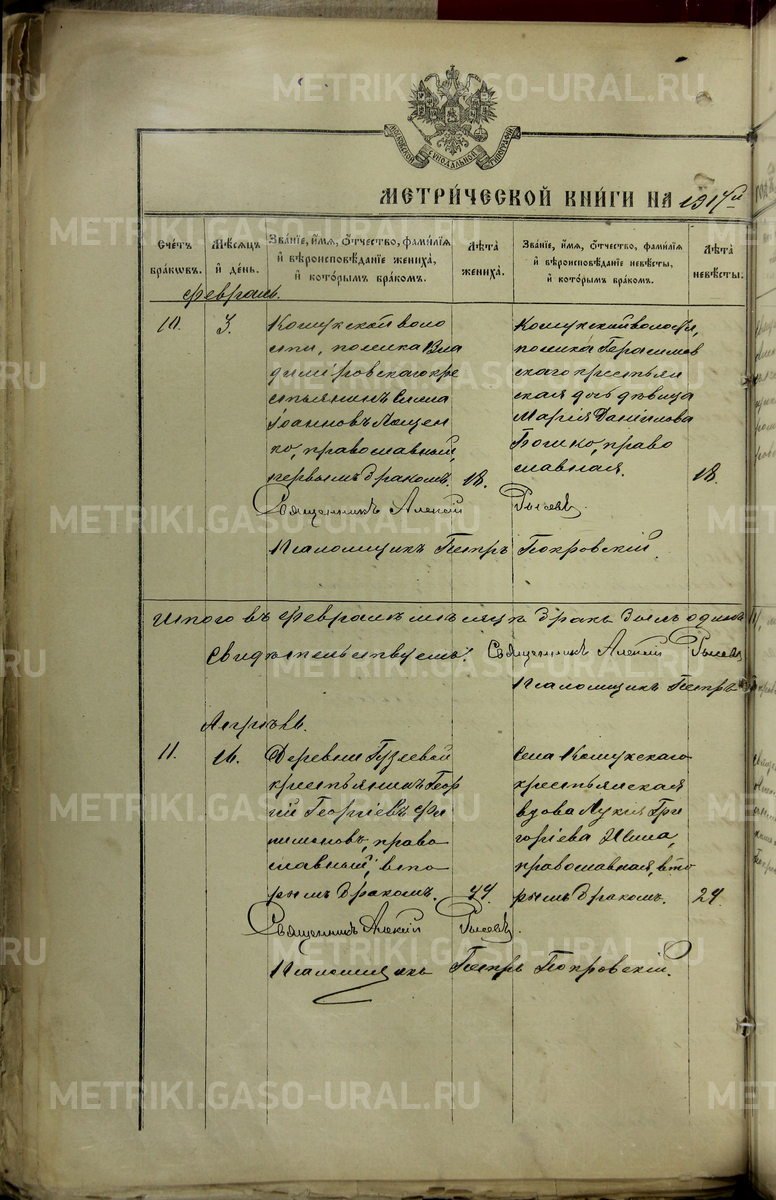 METRIKI.GASO-URAL.RU
МОСКОВСКОЙ СѴНОДАЛЬНОЙ ТИПОГРАФІИ
МЕТРИ́ЧЕСКОЙ КНИ́ГИ НА 1917ый
Сче́тъ бра́кωвъ.
Мѣ́сяцъ и҆ де́нь.
Зва́нїе, и҆́мя, ѻ҆́тчество, фами́лїя и҆ вѣроисповѣ́данїе жениха̀, и҆ кото́рымъ бра́комъ.
Лѣ́та жениха̀.
Зва́нїе, и҆́мя, ѻ҆́тчество, фами́лїя и҆ вѣроисповѣ́данїе невѣ́сты, и҆ кото́рымъ бра́комъ.
Лѣ́та невѣ́сты.
Февраль.
10.
3.
Кошукской воло
сти, поселка Вла
димировскаго кре
стьянинъ
Іоанновъ Лящен
ко, православный,
первымъ бракомъ.
18.
Кошукской волости,
поселка Герасимов
скаго крестьян
ская дочь девица
Марія Данилова
Бошко, право
славная.
18.
Священникъ Алексій
Псаломщикъ Петръ Покровскій.
Итого въ Феврале месяце бракъ былъ одинъ
Свидетельствуемъ: Священникъ Алексій
Псаломщикъ Петръ
Апрѣль.
11.
16.
Деревни
крестьянинъ Геор
гій Георгіевъ Фи
лимоновъ, право
славный, вто
рымъ бракомъ.
44.
Села Кошукскаго
крестьянская
вдова Лукія Гри
горіева
православная, вто
рымъ бракомъ.
24
Священникъ Алексій
Псаломщикъ Петръ Покровскій.